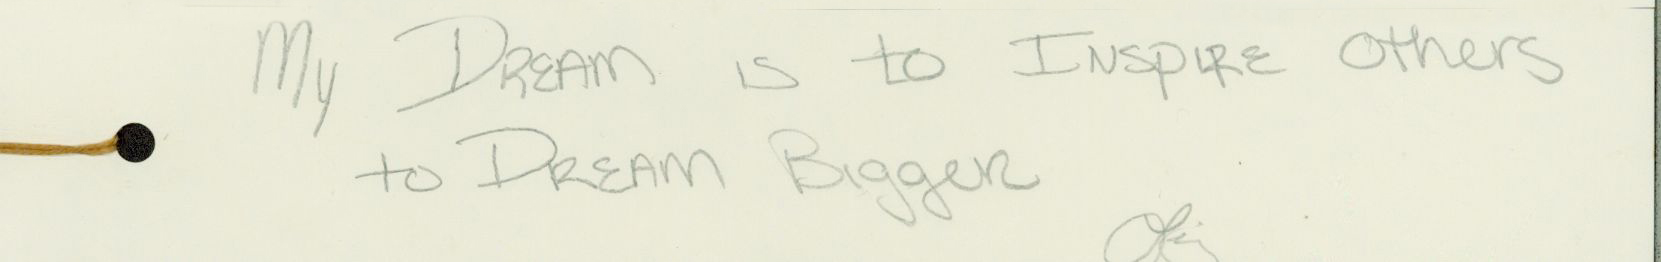 My DREAM is to INSPIRE others
to DREAM Bigger